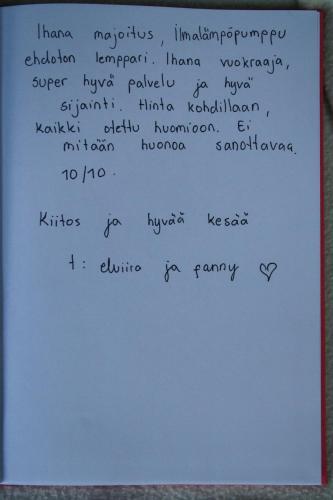 Ihana majoitus, ilmalämpöpumppu
ehdoton lemppari. Ihana vuokraaja,
super hyvä palvelu ja hyvä
sijainti. Hinta kohdillaan,
kaikki otettu huomioon. Ei
mitään huonoa sanottavaa.
10/10.
Kiitos ja hyvää kesää
t: elviira ja fanny ♡